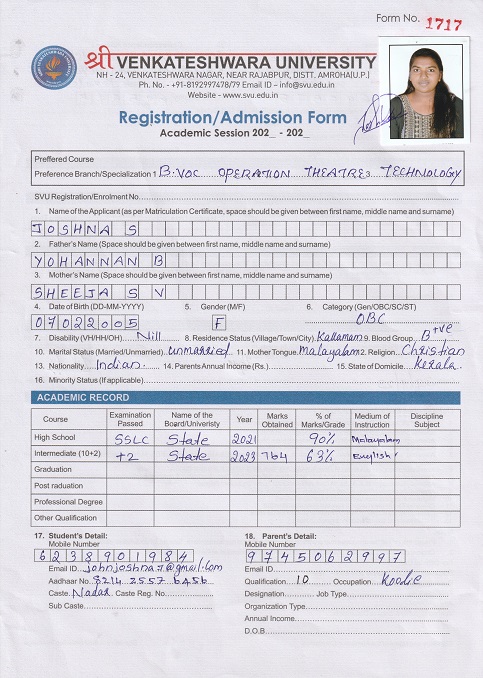 Form No. 1717
श्री VENKATESHWARA UNIVERSITY
NH - 24, VENKATESHWARA NAGAR, NEAR RAJABPUR, DISTT. AMROHA(U.P.)
Ph. No. - +91-8192997478/79 Email ID – info@svu.edu.in
Website - www.svu.edu.in
Registration/Admission Form
Academic Session 202_ - 202_
Prefferred Course
Preference Branch/Specialization 1 B.VOC OPERATION THEATRE 3. TECHNOLOGY
SVU Registration/Enrolment No.
1. Name of the Applicant (as per Matriculation Certificate, space should be given between first name, middle name and surname)
JOSHNA S
2. Father's Name (Space should be given between first name, middle name and surname)
YOHANNAN B
3. Mother's Name (Space should be given between first name, middle name and surname)
SHEEJA S V
4. Date of Birth (DD-MM-YYYY) 5. Gender (M/F) 6. Category (Gen/OBC/SC/ST)
07022005 F OBC
7. Disability (VH/HH/OH) Nill 8. Residence Status (Village/Town/City) Kallamam 9. Blood Group B+ve
10. Marital Status (Married/Unmarried) unmarried 11. Mother Tongue malayalam 2. Religion Christian
13. Nationality Indian 14. Parents Annual Income (Rs.) 15. State of Domicile Kerala
16. Minority Status (If applicable)
ACADEMIC RECORD
Course Examination Passed Name of the Board/Univeristy Year Marks Obtained % of Marks/Grade Medium of Instruction Discipline Subject
High School SSLC State 2021 90% Malayalam
Intermediate (10+2) +2 State 2023 764 63% English
Graduation
Post raduation
Professional Degree
Other Qualification
17. Student's Detail: 18. Parent's Detail:
Mobile Number Mobile Number
6238901984 9745062997
Email ID johnjoshna7@gmail.com Email ID
Aadhaar No. 8214 2557 6456 Qualification 10 Occupation
Caste Nadar Caste Reg. No. Designation Job Type
Sub Caste Organization Type
Annual Income
D.O.B